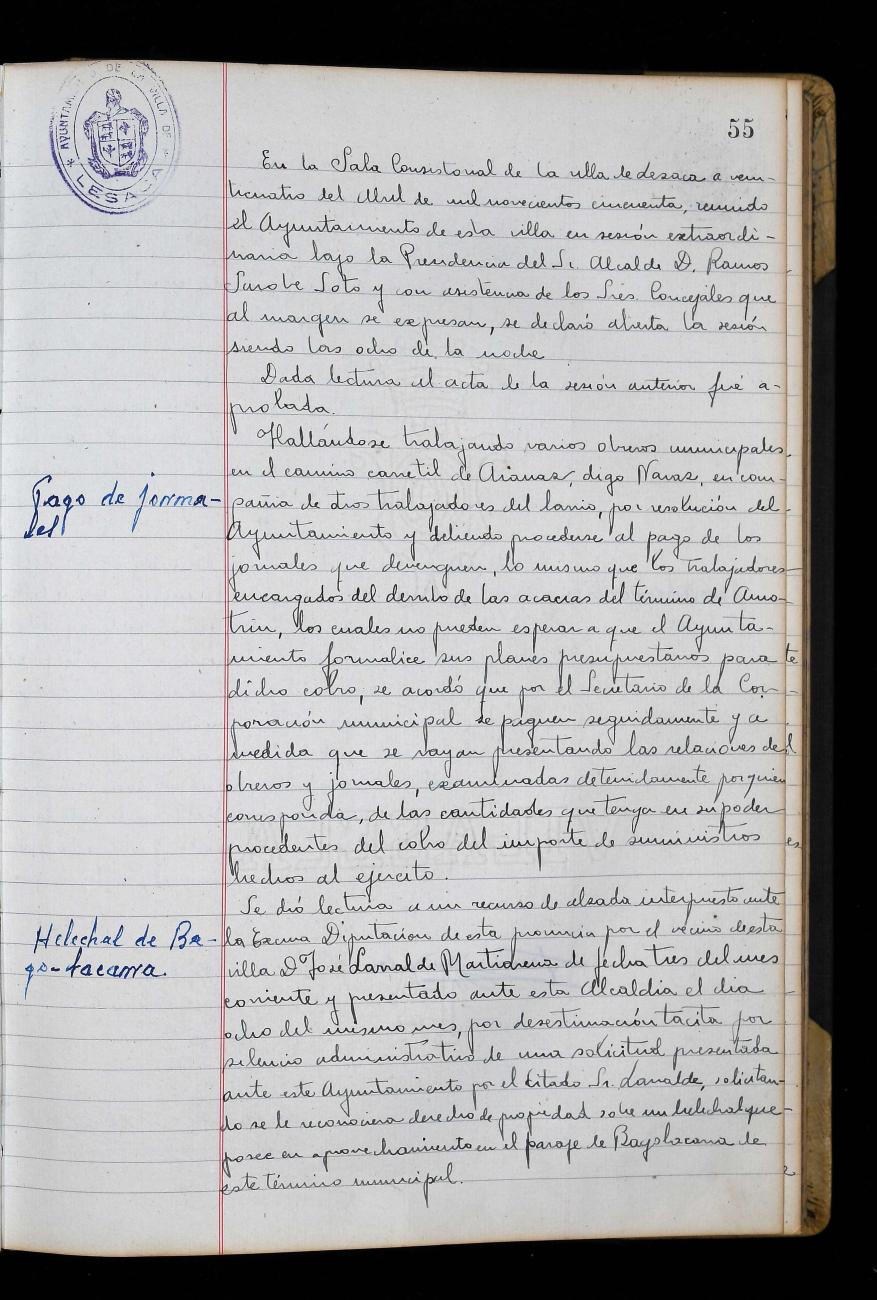 AYUNTAMIENTO DE LA VILLA DE
* LESACA *
55
En la Sala Consistorial de la villa de Lesaca a vein-
ticuatro del Abril de mil novecientos cincuenta, reunido
el Ayuntamiento de esta villa en sesión extraordi-
naria bajo la Presidencia del Sr. Alcalde D. Ramos
Sarobe Soto y con asistencia de los Sres. Concejales que
al margen se expresan, se declaró abierta la sesión
siendo las ocho de la noche
Dada lectura al acta de la sesión anterior fué a-
probada.
Pago de jorna-
les
Hallándose trabajando varios obreros municipales
en el camino carretil de Arianaz, digo Navaz, en com-
pañia de otros trabajadores del barrio, por resolución del
Ayuntamiento y debiendo procederse al pago de los
jornales que devenguen, lo mismo que los trabajadores
encargados del derribo de las acacias del término de Amo-
trin, los cuales no pueden esperar a que el Ayunta-
miento formalice sus planes presupuestarios para
dicho cobro, se acordó que por el Secretario de la Cor-
poración municipal se paguen seguidamente y a
medida que se vayan presentando las relaciones de
obreros y jornales, examinadas detenidamente por quien
corresponda, de las cantidades que tenga en su poder
procedentes del cobro del importe de suministros
hechos al ejercito.
Helechal de Ba-
go-lacarra.
Se dió lectura a un recurso de alzada interpuesto ante
la Excma Diputacion de esta provincia por el vecino de esta
villa D José Larralde Martiarena de fecha tres del mes
corriente y presentado ante esta Alcaldia el dia
ocho del mismo mes, por desestimación tacita por
silencio administrativo de una solicitud presentada
ante este Ayuntamiento por el citado Sr. Larralde, solicitan-
do se le reconociera derecho de propiedad sobre un helechal que
posee en aprovechamiento en el paraje de Bagolacarra de
este término municipal.